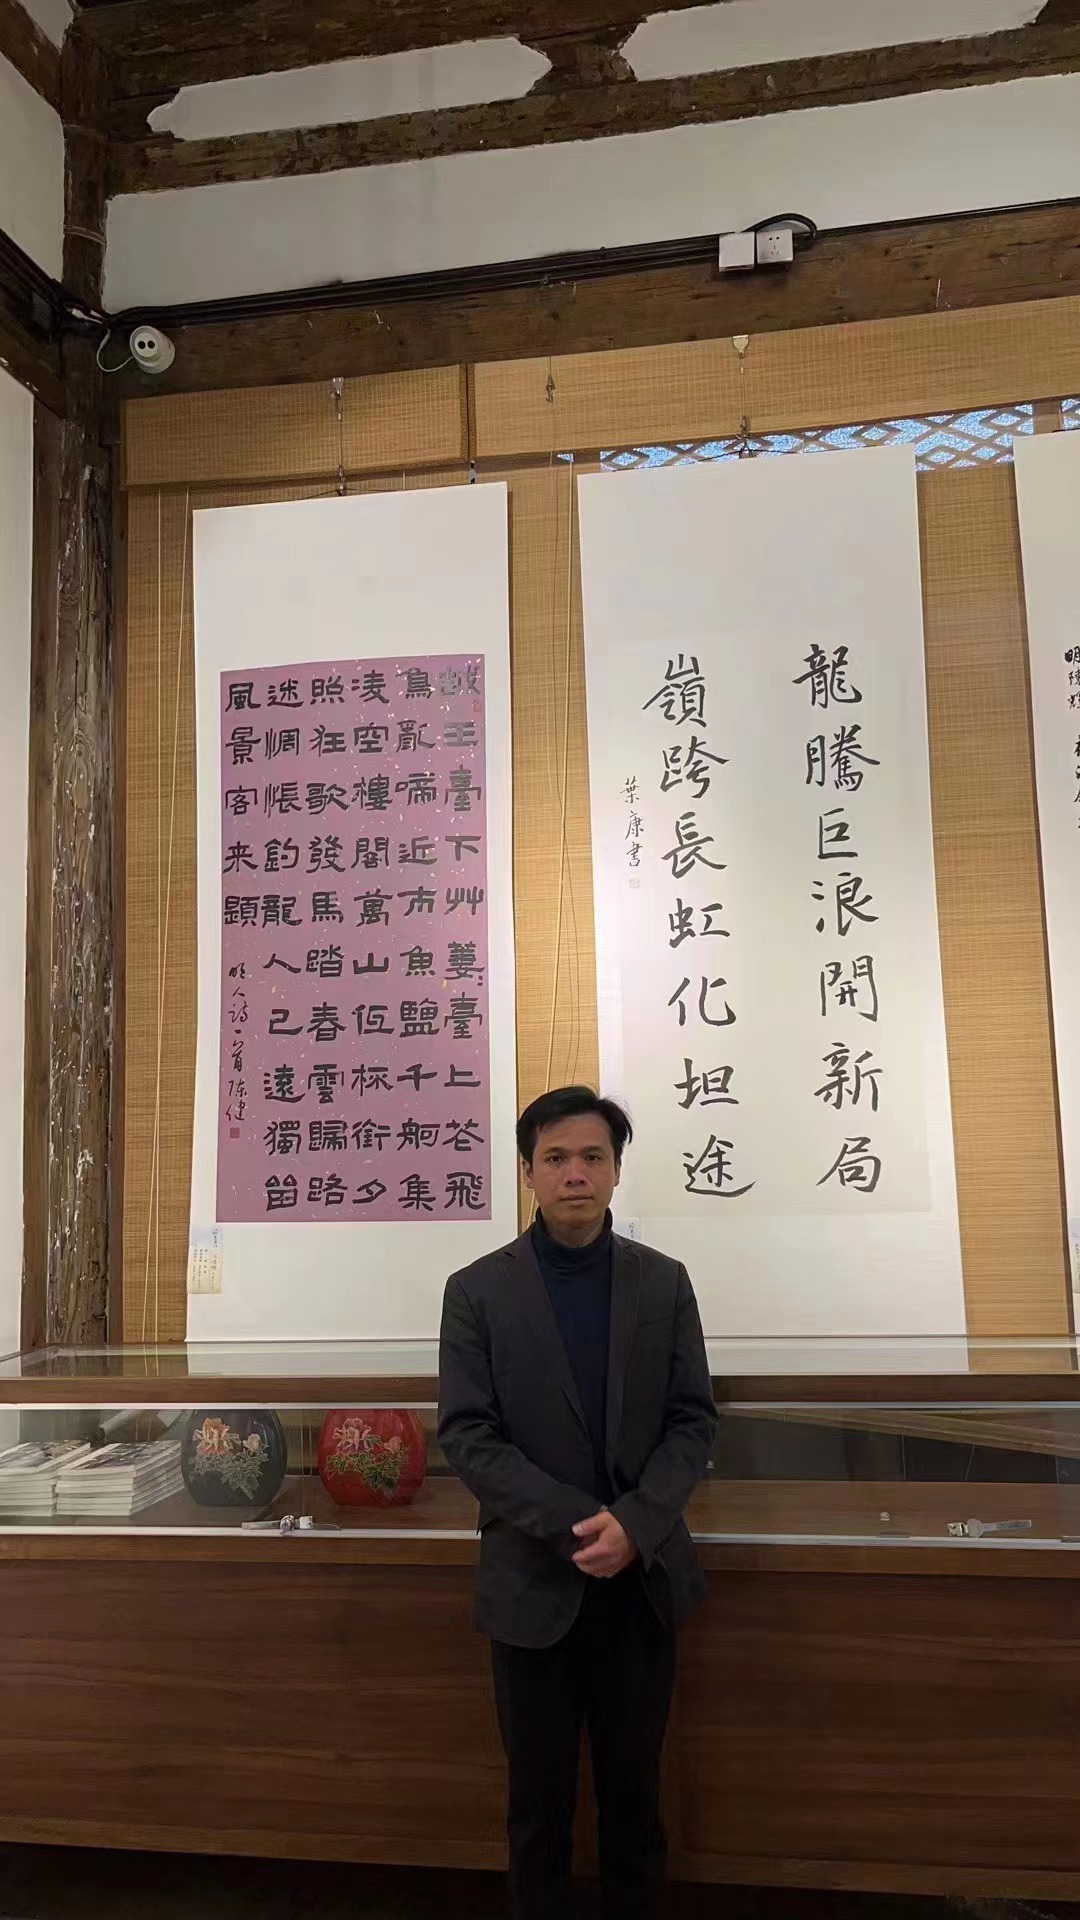 龍騰巨浪開新局
嶺跨長虹化坦途
葉康書
越王臺下艸萋〻臺上芲飛
鳥亂啼近市魚鹽千舸集
凌空樓閣萬山低杯銜夕
照狂歌發馬踏春雲歸路
迷惆悵釣龍人已遠獨留
風景客来題
明人詩一首陈健